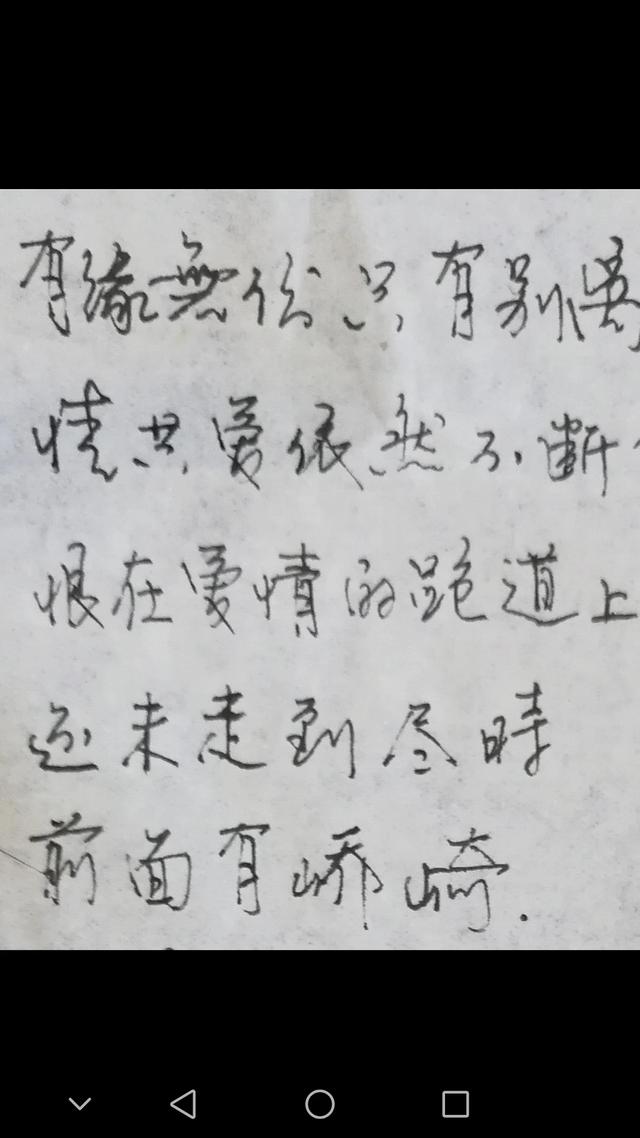 有緣無份只有別离
情共爱依然不断
恨在爱情的跑道上
还未走到尽時
前面有峤崎.